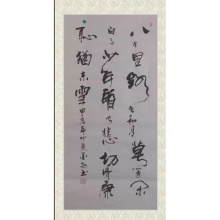 八千里路云和月莫等闲
白了少年頭空悲切靖康
恥猶未雪